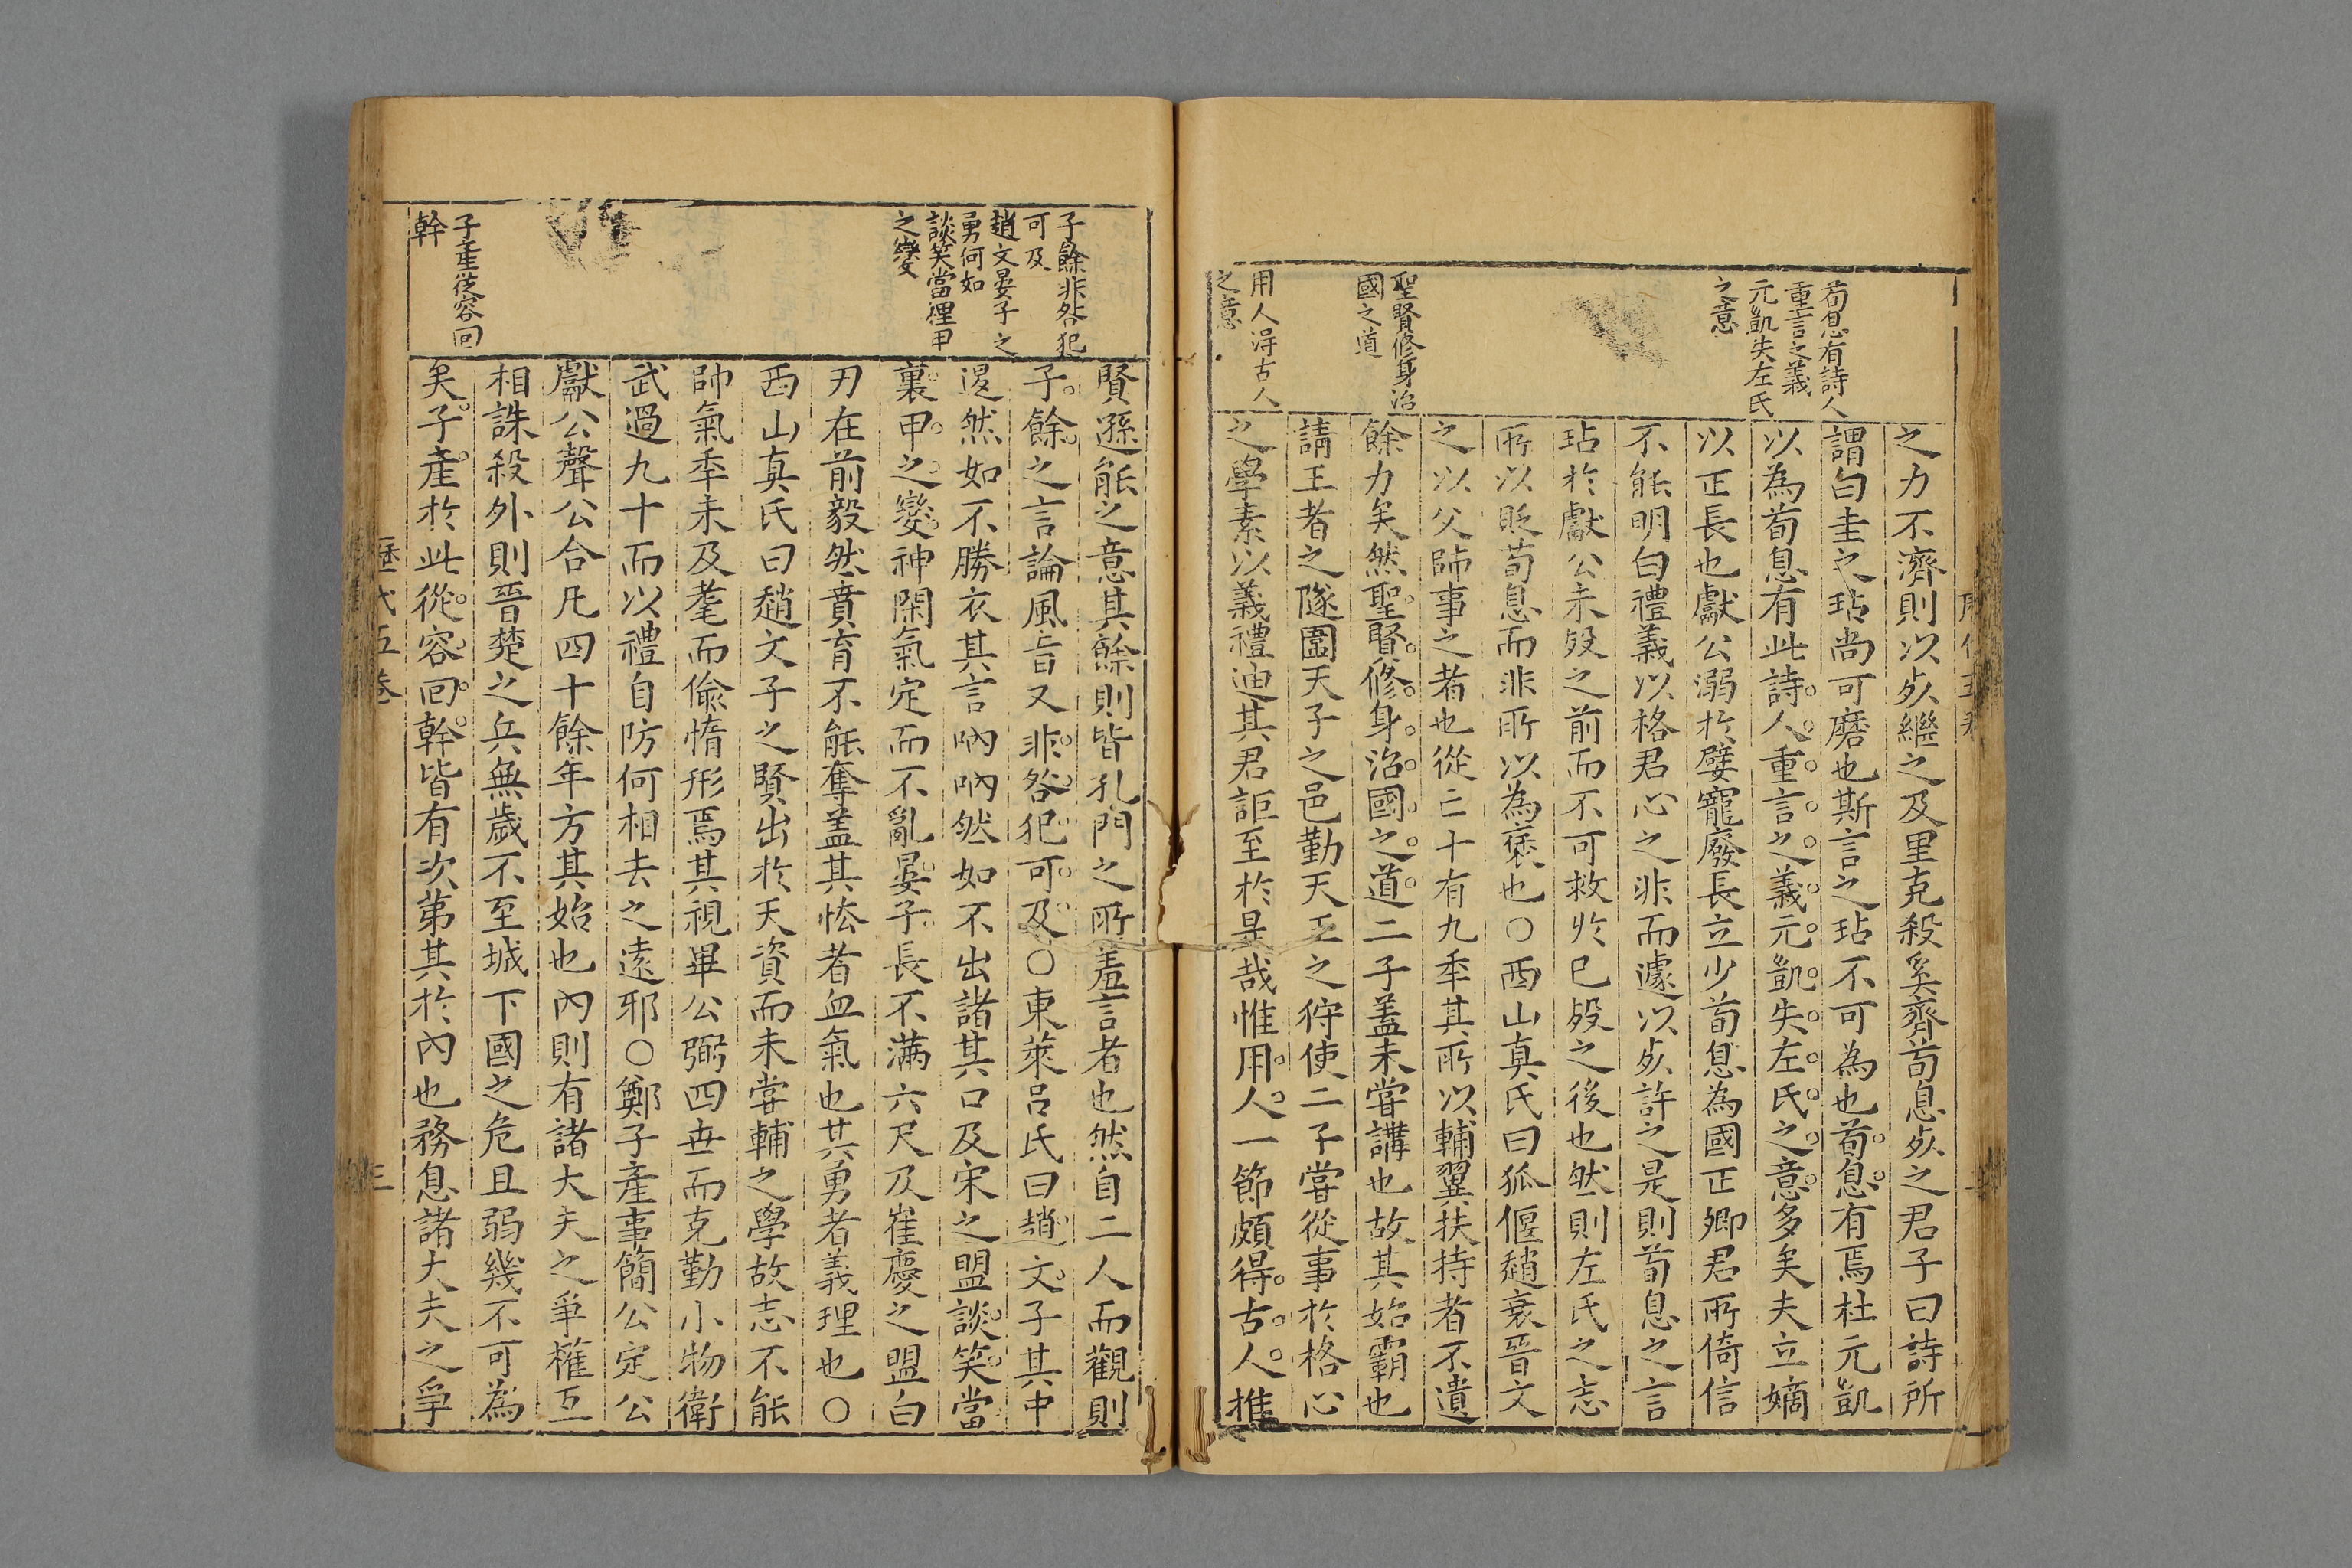 荀息有詩人
重言之義
元凱失左氏
之意
聖賢修身治
國之道
用人淂古人
之意
之力不濟則以㱙繼之及里克殺奚齊荀息㱙之君子曰詩所
謂白圭之玷尚可磨也斯言之玷不可為也荀息有焉杜元凱
以為荀息有此詩人重言之義元凱失左氏之意多矣夫立嫡
以正長也獻公溺於嬖寵廢長立少荀息為國正卿君所倚信
不能明白禮義以格君心之非而遽以㱙許之是則荀息之言
玷於獻公未歿之前而不可救扵已歿之後也然則左氏之志
所以貶荀息而非所以為褒也○西山真氏曰狐偃趙衰晉文
之以父師事之者也從亡十有九年其所以輔翼扶持者不遺
餘力矣然聖賢修身治國之道二子蓋未嘗講也故其始霸也
請王者之隧圍天子之邑勤天王之狩使二子嘗從事於格心
之學素以義禮迪其君詎至於是哉惟用人一節頗得古人推
子餘非咎犯
可及
趙文晏子之
勇何如
談笑當裡甲
之變
子產從容囬
幹
賢遜能之意其餘則皆孔門之所羞言者也然自二人而觀則
子餘之言論風旨又非咎犯可及○東萊呂氏曰趙文子其中
退然如不勝衣其言吶吶然如不出諸其口及宋之盟談笑當
裏甲之變神閑氣定而不亂晏子長不滿六尺及崔慶之盟白
刃在前毅然賁育不能奪蓋其恠者血氣也其勇者義理也○
西山真氏曰趙文子之賢出於天資而未嘗輔之學故志不能
帥氣年未及耄而偷惰形焉其視畢公弼四世而克勤小物衛
武過九十而以禮自防何相去之遠邪○鄭子產事簡公定公
獻公聲公合凡四十餘年方其始也內則有諸大夫之爭權互
相誅殺外則晉楚之兵無歲不至城下國之危且弱幾不可為
矣子產於此從容囬幹皆有次第其於內也務息諸大夫之爭
歷代五卷
三